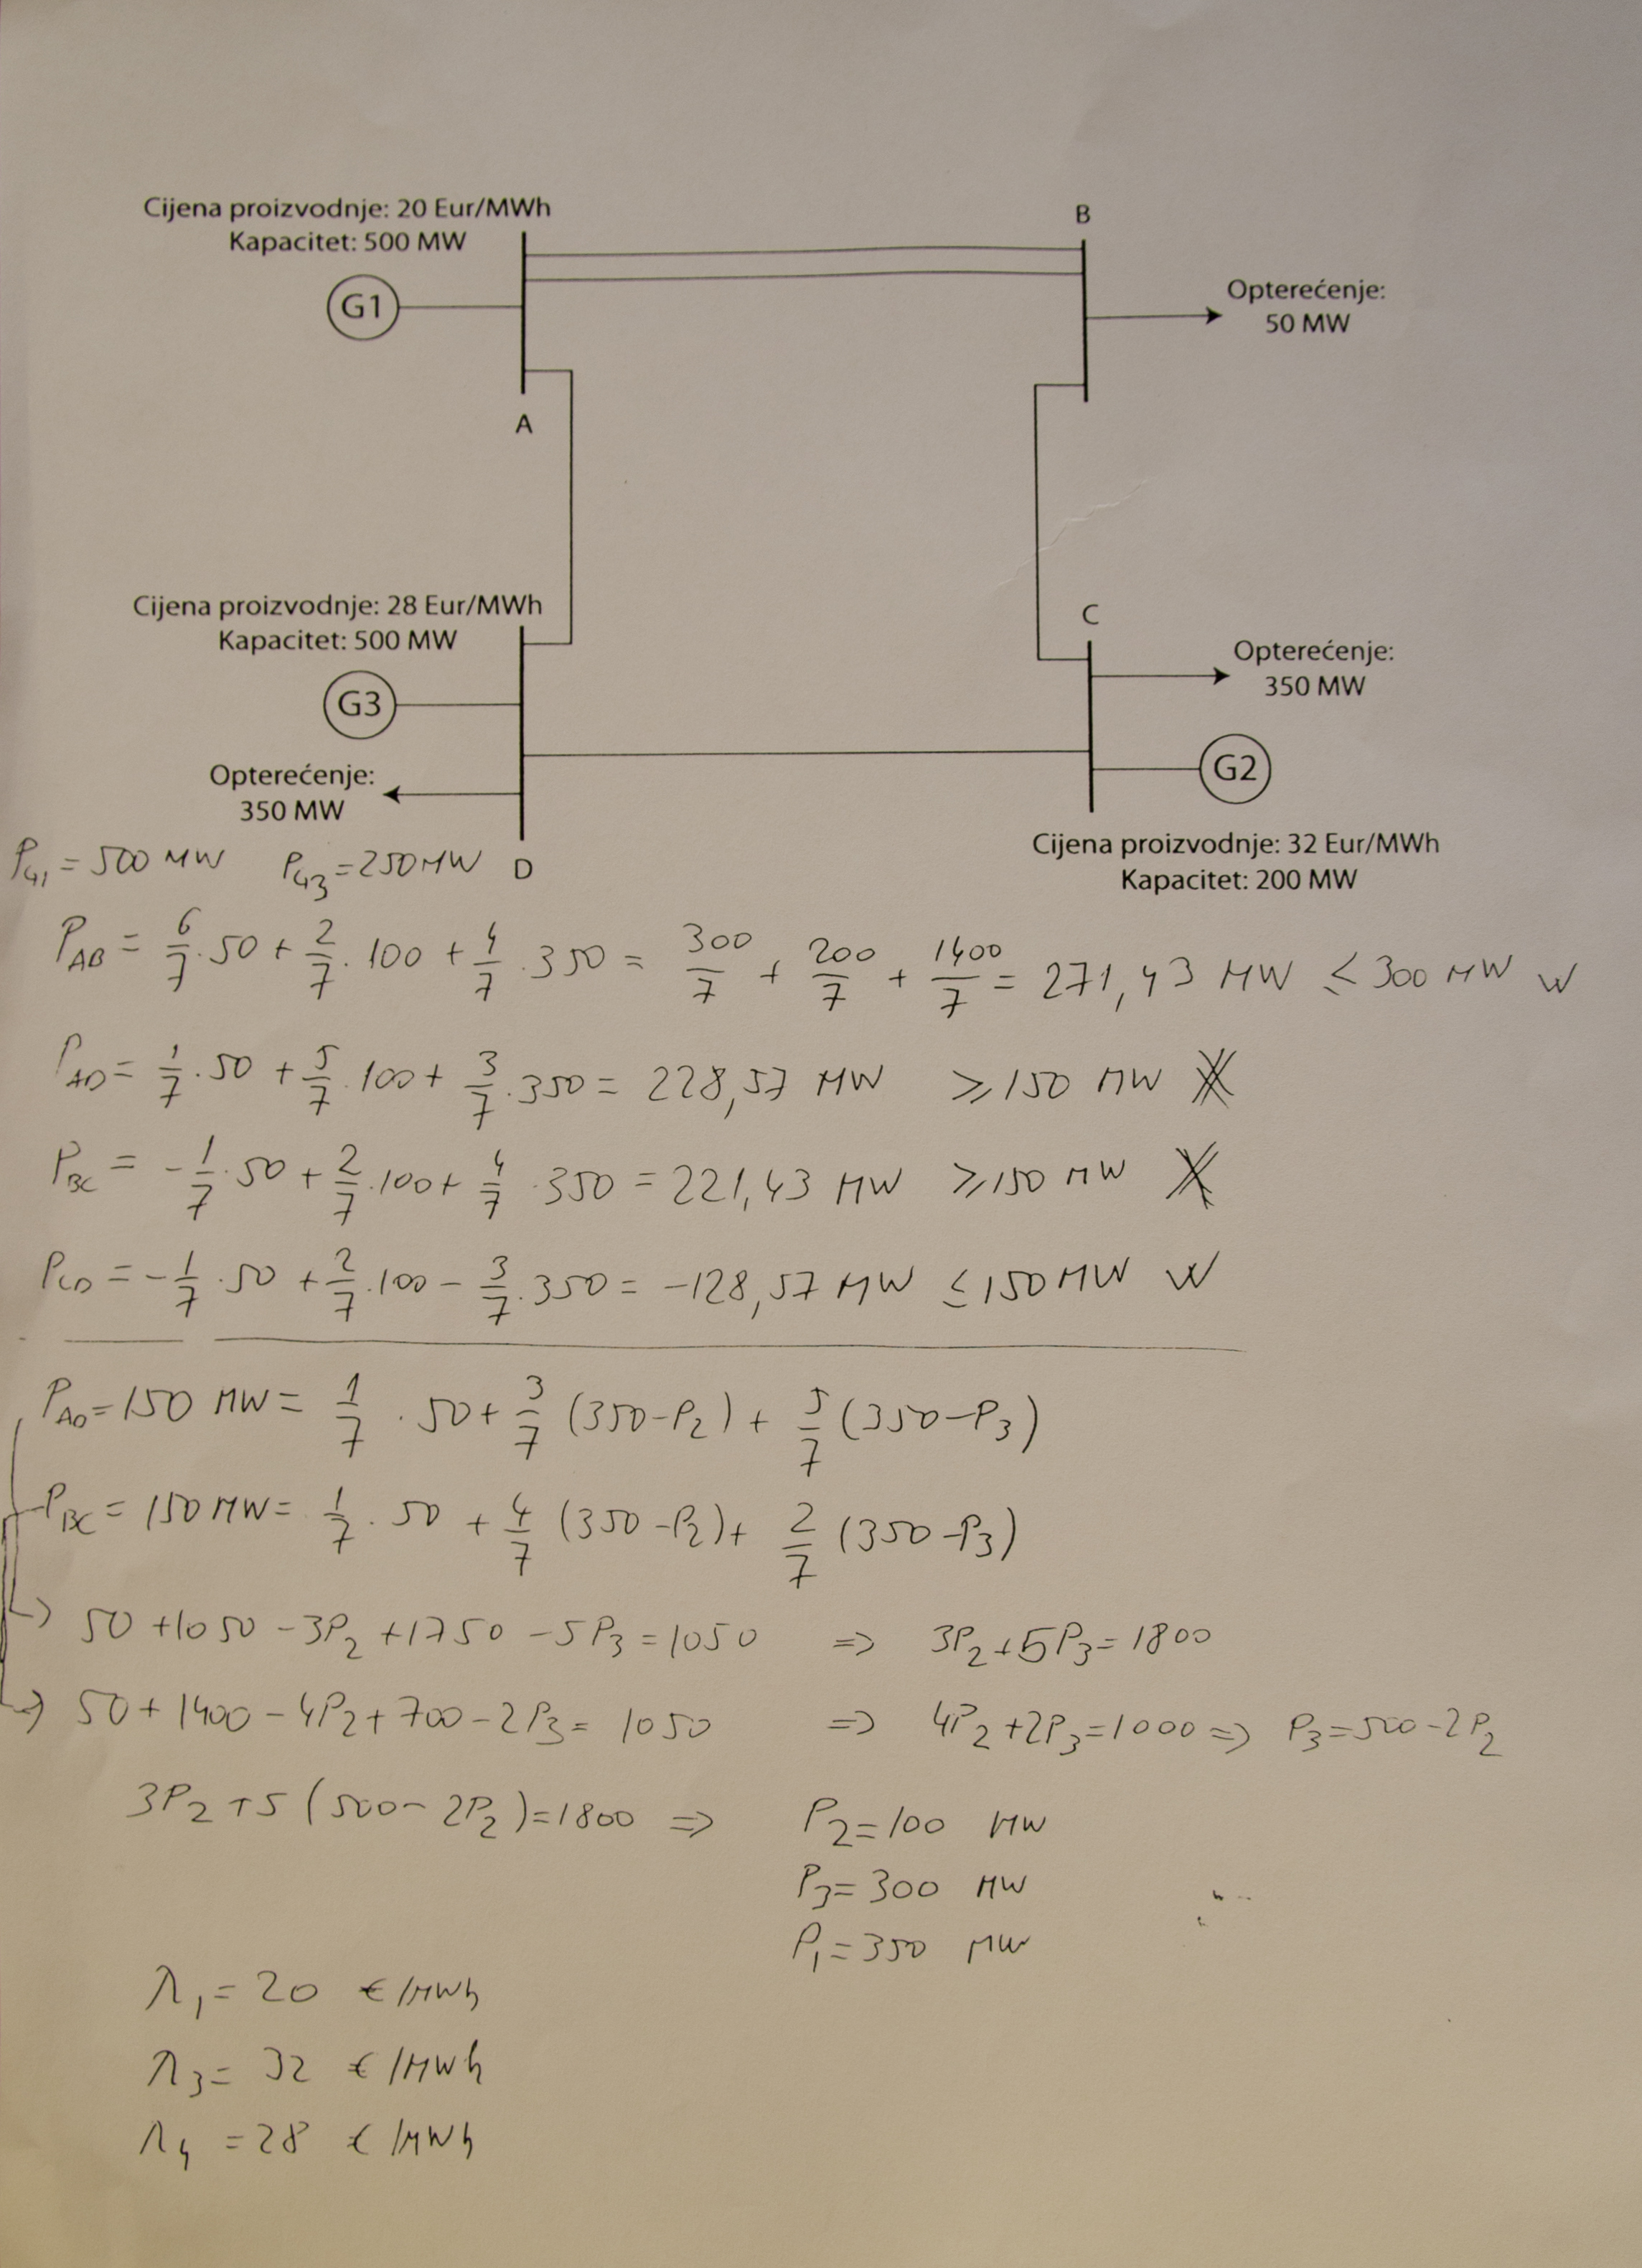 Cijena proizvodnje: 20 Eur/MWh
Kapacitet: 500 MW
G1
A
B
Opterećenje:
50 MW
Cijena proizvodnje: 28 Eur/MWh
Kapacitet: 500 MW
G3
Opterećenje:
350 MW
D
C
Opterećenje:
350 MW
G2
Cijena proizvodnje: 32 Eur/MWh
Kapacitet: 200 MW
P_G1 = 500 MW P_G3 = 250 MW
P_AB = 6/7 · 50 + 2/7 · 100 + 4/7 · 350 = 300/7 + 200/7 + 1400/7 = 271,43 MW ≤ 300 MW
P_AD = 1/7 · 50 + 5/7 · 100 + 3/7 · 350 = 228,57 MW ≥ 150 MW
P_BC = -1/7 · 50 + 2/7 · 100 + 4/7 · 350 = 221,43 MW ≥ 150 MW
P_CD = -1/7 · 50 + 2/7 · 100 - 3/7 · 350 = -128,57 MW ≤ 150 MW
P_AD = 150 MW = 1/7 · 50 + 3/7 (350-P2) + 5/7 (350-P3)
P_BC = 150 MW = 1/7 · 50 + 4/7 (350-P2) + 2/7 (350-P3)
→ 50 + 1050 - 3P2 + 1750 - 5P3 = 1050 ⇒ 3P2 + 5P3 = 1800
→ 50 + 1400 - 4P2 + 700 - 2P3 = 1050 ⇒ 4P2 + 2P3 = 1000 ⇒ P3 = 500 - 2P2
3P2 + 5 (500 - 2P2) = 1800 ⇒ P2 = 100 MW
P3 = 300 MW
P1 = 350 MW
λ1 = 20 €/MWh
λ3 = 32 €/MWh
λ4 = 28 €/MWh